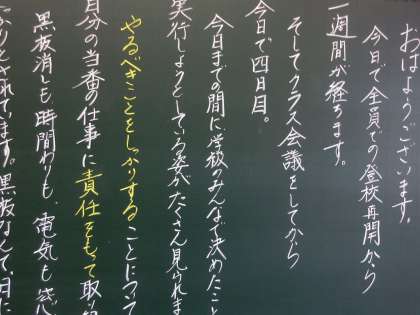 おはようございます。
今日で全員での登校再開から
一週間が経ちます。
そしてクラス会議をしてから
今日で四日目。
今日までの間に学級のみんなで決めたこと
実行しようとしている姿がたくさん見られま
やるべきことをしっかりすることについて
自分の当番の仕事に責任をもって取り
黒板消しも時間わりも、電気も窓
なりとされています。黒板なんて、日に